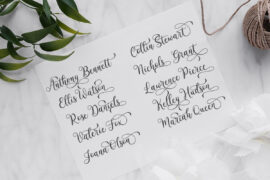 Anthony Bennett
Ellis Watson
Rose Daniels
Valerie Fox
Joann Olson
Collin Stewart
Nichols Grant
Lawrence Pierce
Kelley Hudson
Mariah Queen